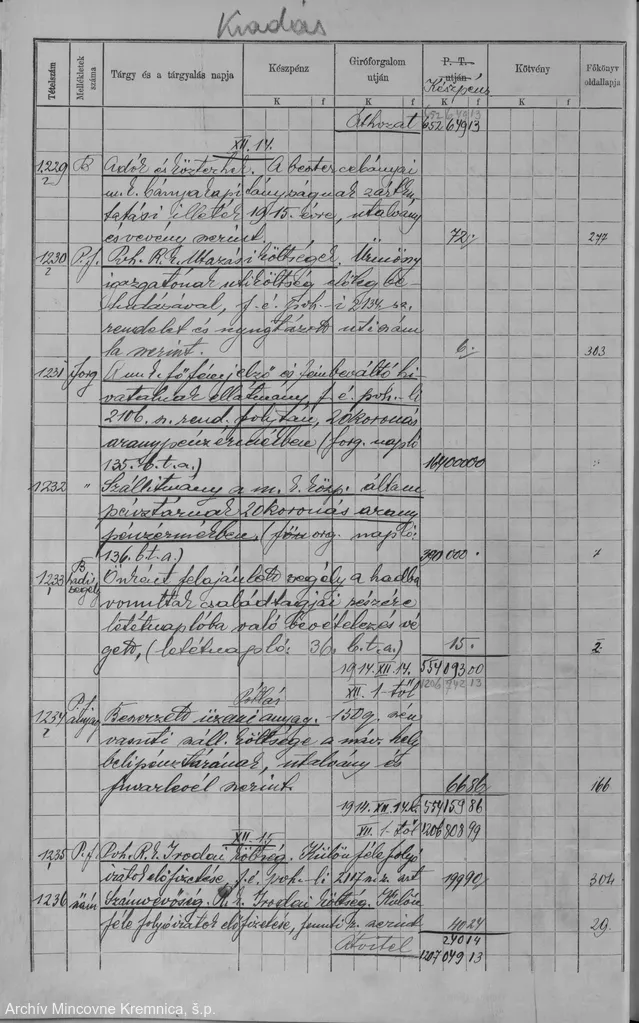 Kiadás
Tételszám
Mellékletek száma
Tárgy és a tárgyalás napja
Készpénz
Giróforgalom utján
P. T. utján
Készpénz
Kötvény
Főkönyv oldallapja
K f K f K f K f
652 640 13
Áthozat 652 649 13
XII. 14.
1229 B Adók és közterhek. A besztercebányai
m. k. bányakapitányságnak zártku-
tatási illeték 1915. évre, utalvány
és vevény szerint. 72 277
1230 P.f. Poh. R. k. Utazási költségek. Ürmöny
igazgatónak uti költség előleg be-
tudásával, f. é. Poh.-i 2134 sz.
rendelet és nyugtázott uti szám-
la szerint. 6. 303
1231 forg. A m. k. főfémjelző és fémbeváltó hi-
vatalnak ellátmány f. é. poh.-li
2106. n. rend. folytán, 20 koronás
aranypénzérmékben (forg. napló
135. b. t. a.) 164000 00
1232 " Szállitmány a m. k. közp. állam
pénztárnak 20 koronás arany
pénzérmékben. (forg. napló:
136. b. t. a.) 390000 .
1233 B hadi segély Önként felajánlott segély a hadba
vonultak családtagjai részére
letétnaplóba való bevételezés vé-
gett, (letétnapló: 36. b. t. a.) 15. 2
1914. XII. 14. 554093 00
XII. 1-től 1206742 13
Pótlás
1234 P.f. anyag Beszerzett üzemi anyag. 150 q. szén
vasuti száll. költsége a máv. hely-
beli pénztárának, utalvány és
fuvarlevél szerint. 66 86 166
1914. XII. 14. 554159 86
XII. 1-től 1206808 99
XII. 15.
1235 P.f. Poh. R. k. Irodai költség. Különféle folyó
iratok előfizetése, f. é. poh.-li 2117 n. r. szt. 199 90 304
1236 szám Számvevőség. R. k. Irodai költség. Külön
féle folyóiratok előfizetése, fenti r. szerint 40 24 29.
240 14
Átvitel 1207049 13
Archív Mincovne Kremnica, š.p.